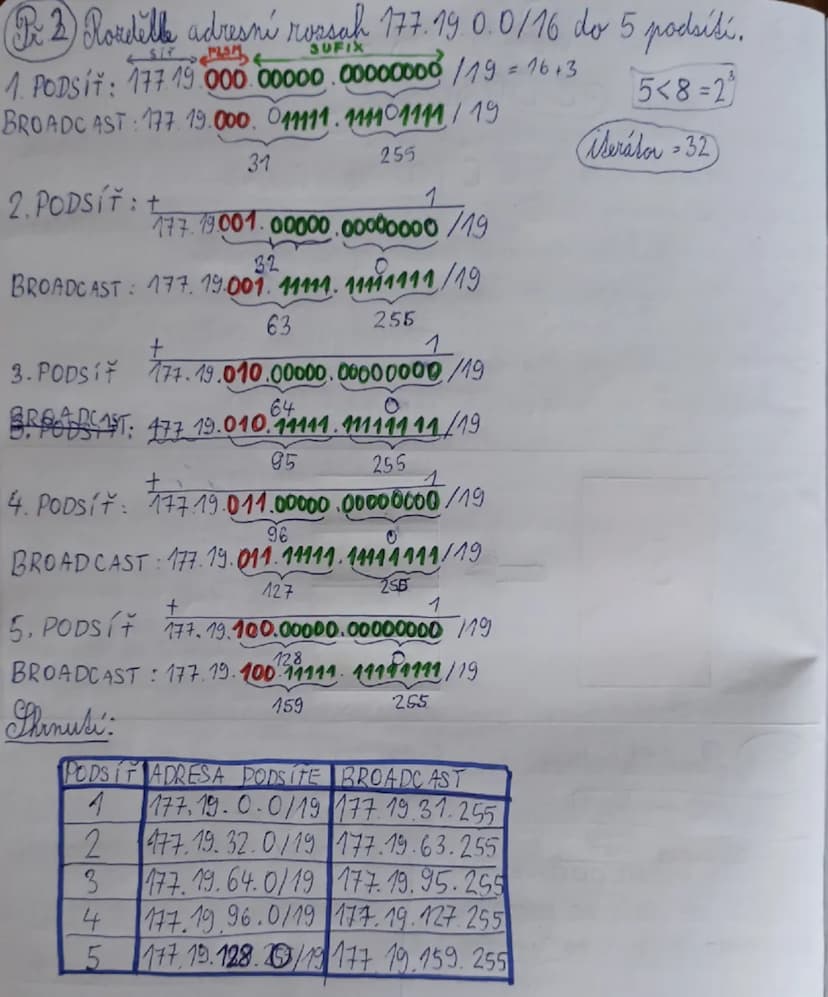 Př 2 Rozdělte adresní rozsah 177.19.0.0/16 do 5 podsítí.
SÍŤ PLSM SUFIX
1. PODSÍŤ: 177.19.000.00000.00000000/19 = 16+3
5<8=2³
BROADCAST: 177.19.000.011111.111101111/19
31 255
iterátor = 32
2. PODSÍŤ: + 1
177.19.001.00000.00000000/19
32 0
BROADCAST: 177.19.001.11111.11111111/19
63 255
+ 1
3. PODSÍŤ 177.19.010.00000.00000000/19
64 0
BROADCAST: 177.19.010.11111.11111111/19
95 255
+ 1
4. PODSÍŤ: 177.19.011.00000.00000000/19
96 0
BROADCAST: 177.19.011.11111.11111111/19
127 255
+ 1
5. PODSÍŤ 177.19.100.00000.00000000/19
128 0
BROADCAST: 177.19.100.11111.11111111/19
159 255
Shrnutí:
PODSÍŤ ADRESA PODSÍTĚ BROADCAST
1 177.19.0.0/19 177.19.31.255
2 177.19.32.0/19 177.19.63.255
3 177.19.64.0/19 177.19.95.255
4 177.19.96.0/19 177.19.127.255
5 177.19.128.0/19 177.19.159.255